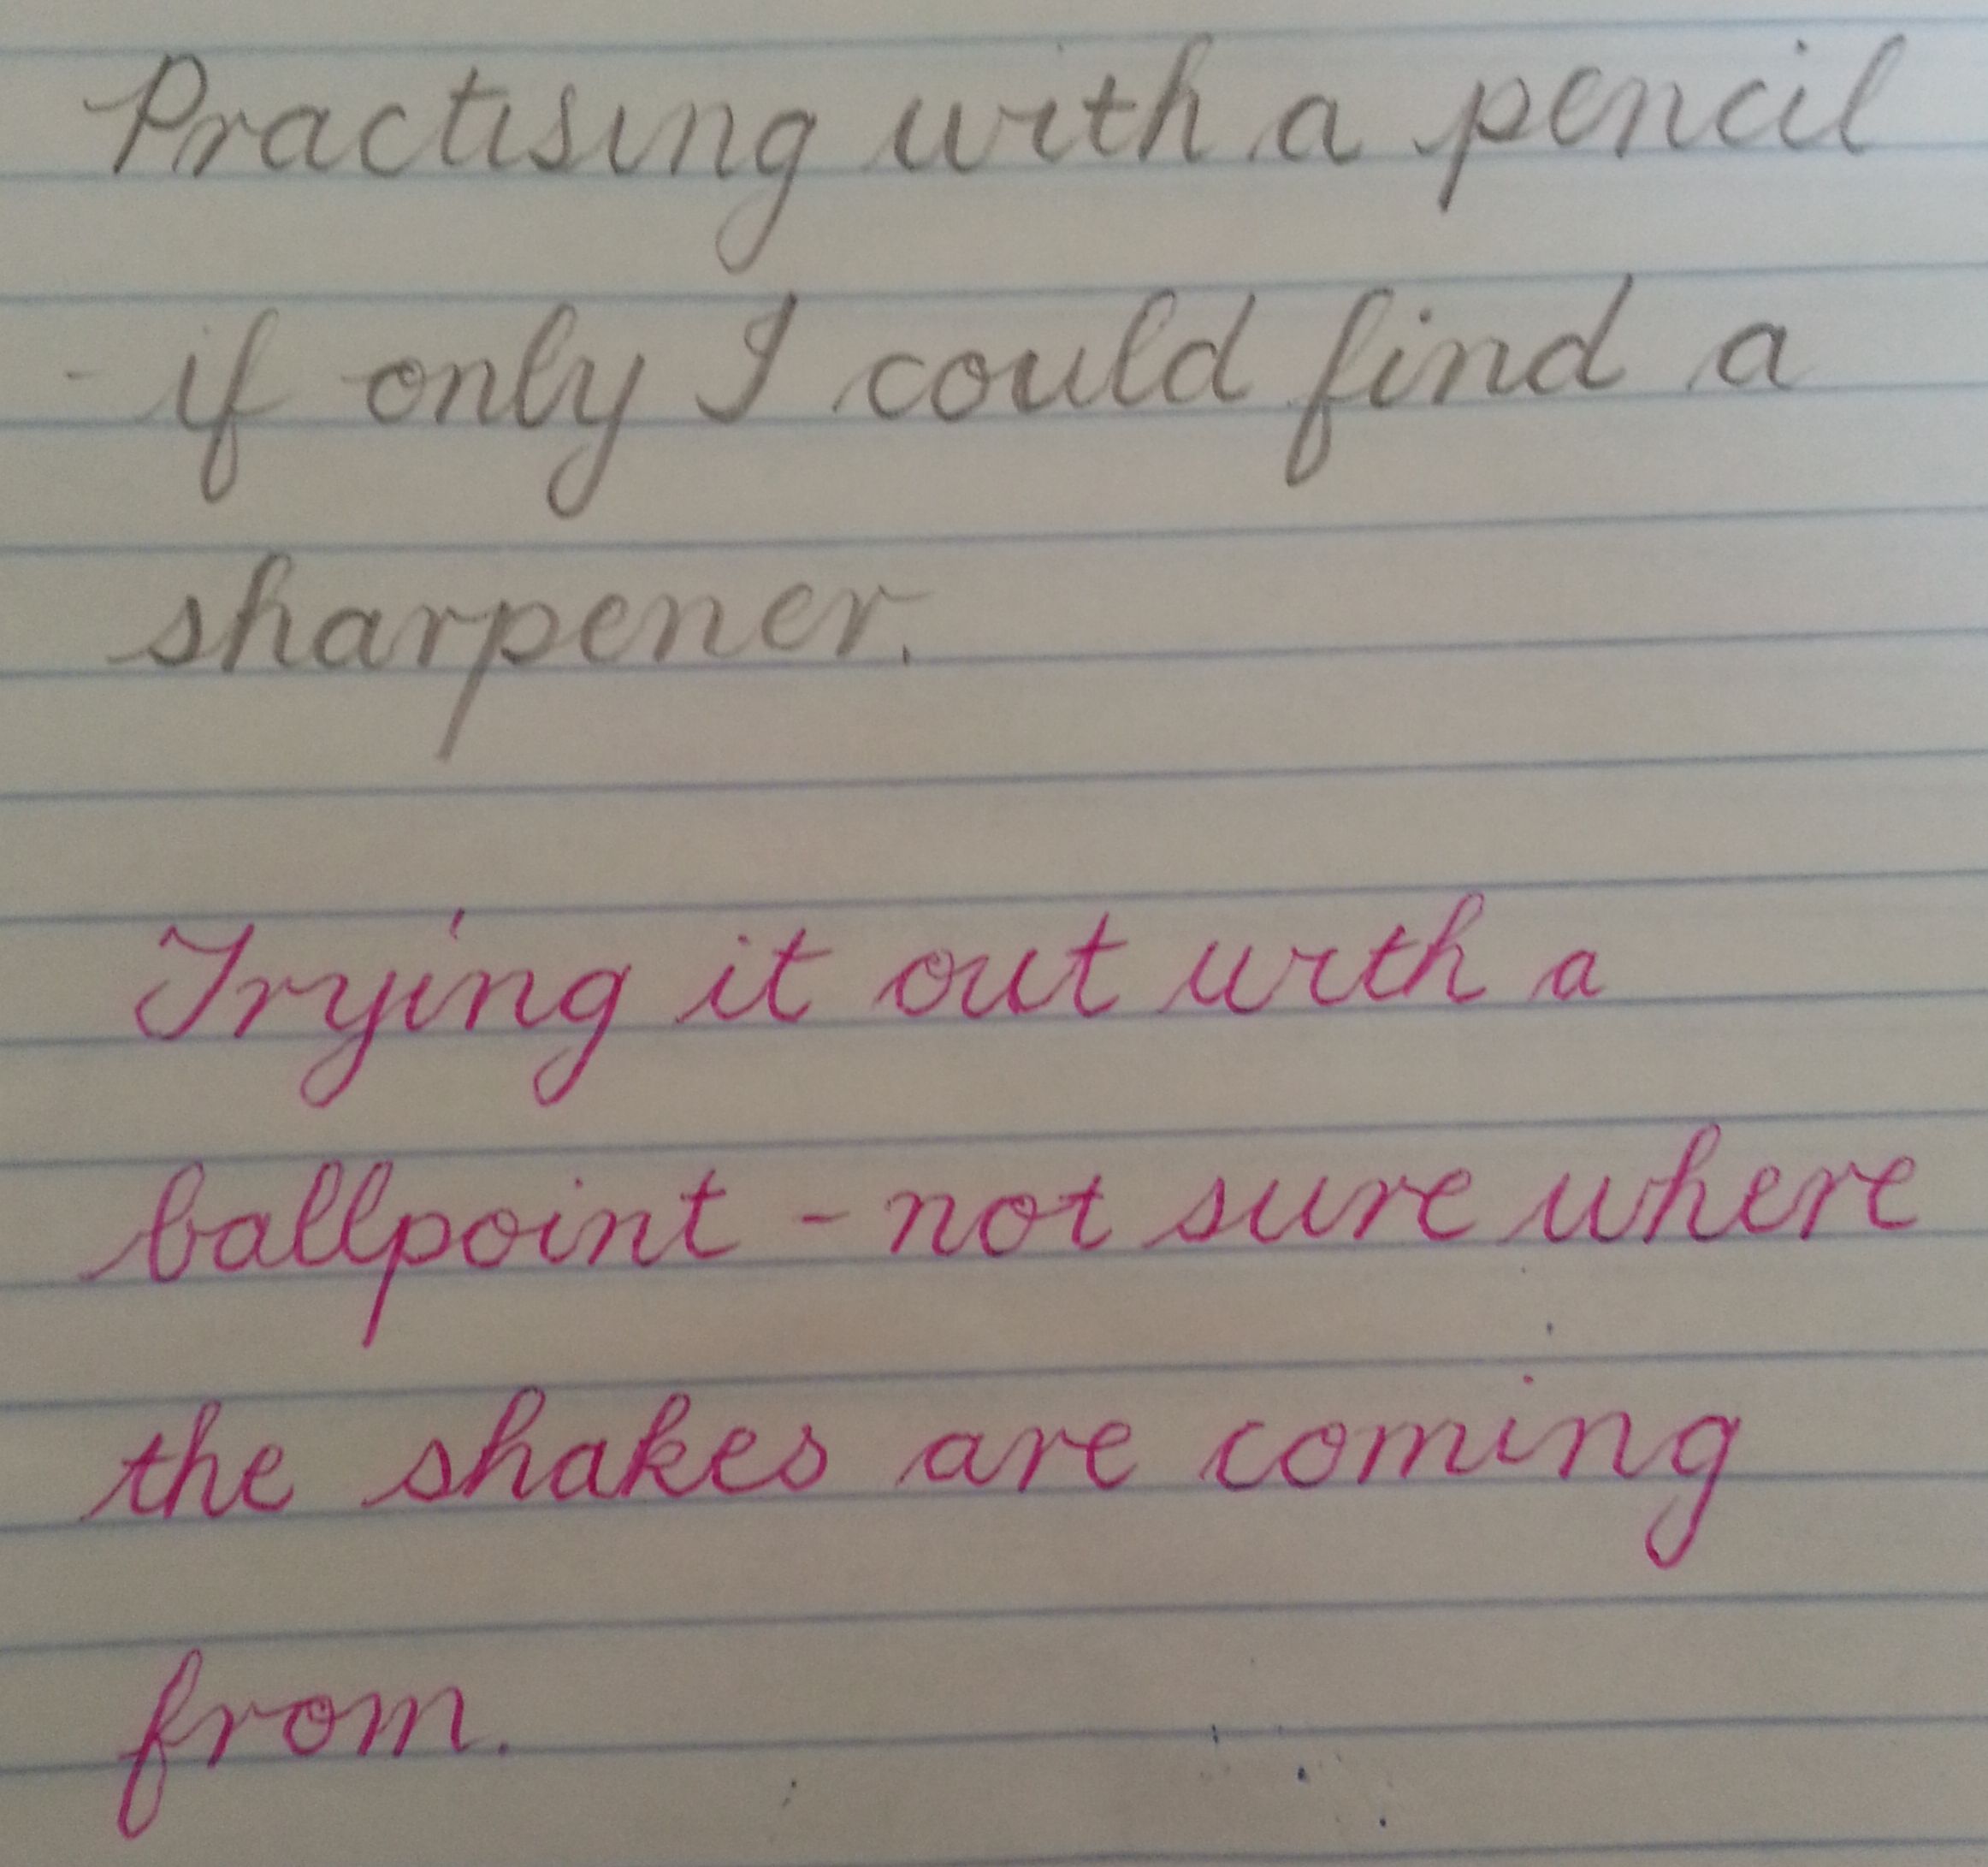 Practising with a pencil
- if only I could find a
sharpener.
Trying it out with a
ballpoint - not sure where
the shakes are coming
from.